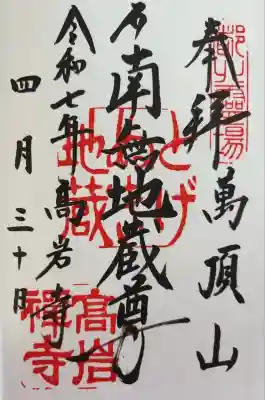 奉拝 萬頂山
南無地蔵尊
令和七年 高岩寺
四月三十日
とげぬき
地蔵
高岩
禅寺